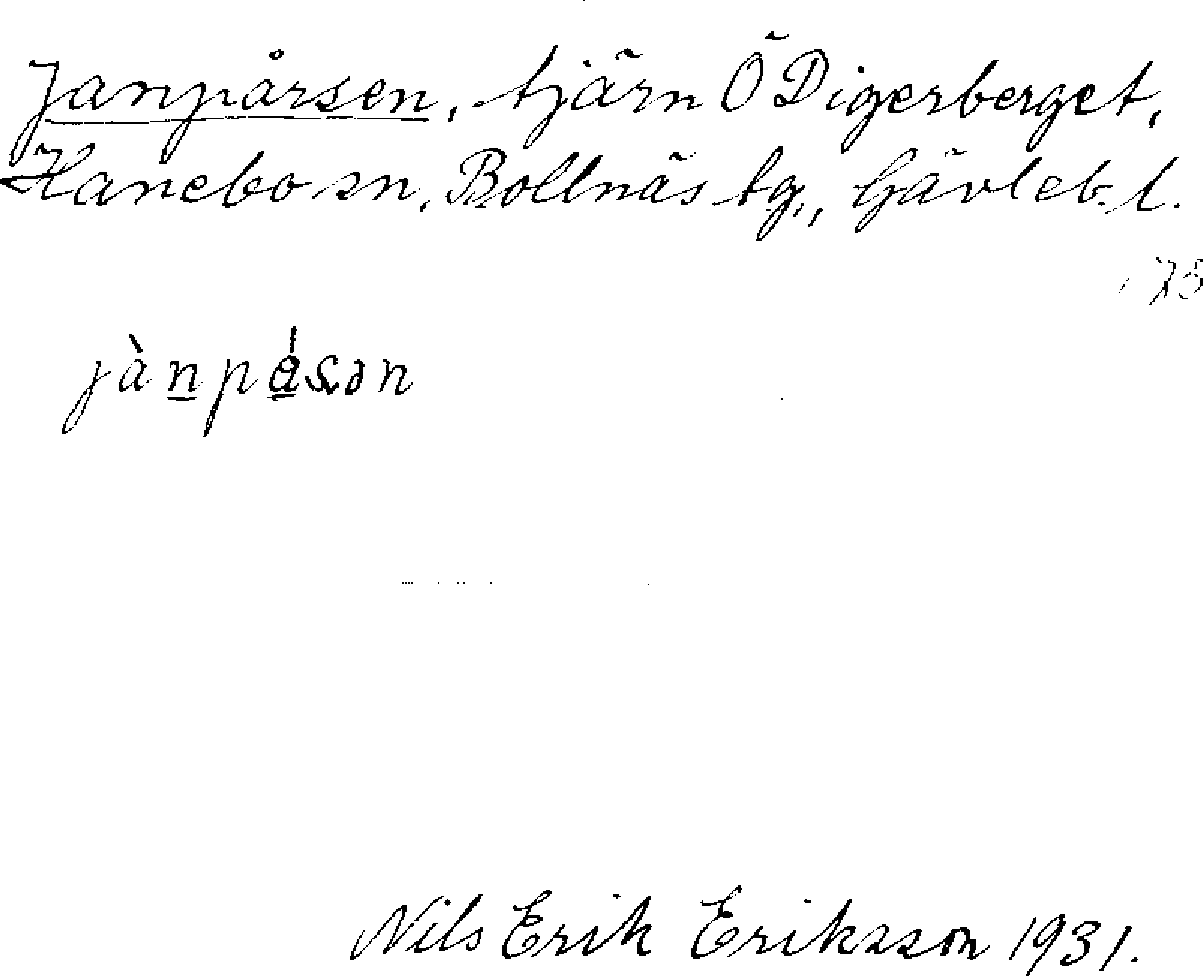 Janpårsen, tjärn Ö Digerberget,
Hanebo sn, Bollnäs tg., Gävleb. l.
jànpásən
Nils Erik Eriksson 1931.